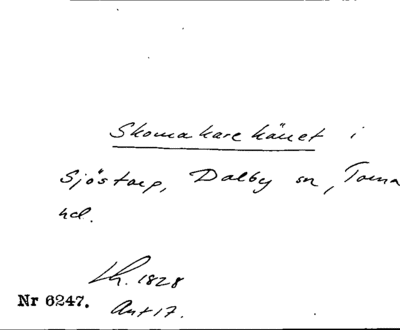 Skomakarekäret i
Sjöstorp, Dalby sn, Torna
hd.
Lh. 1828
Nr 6247. Ant 17.